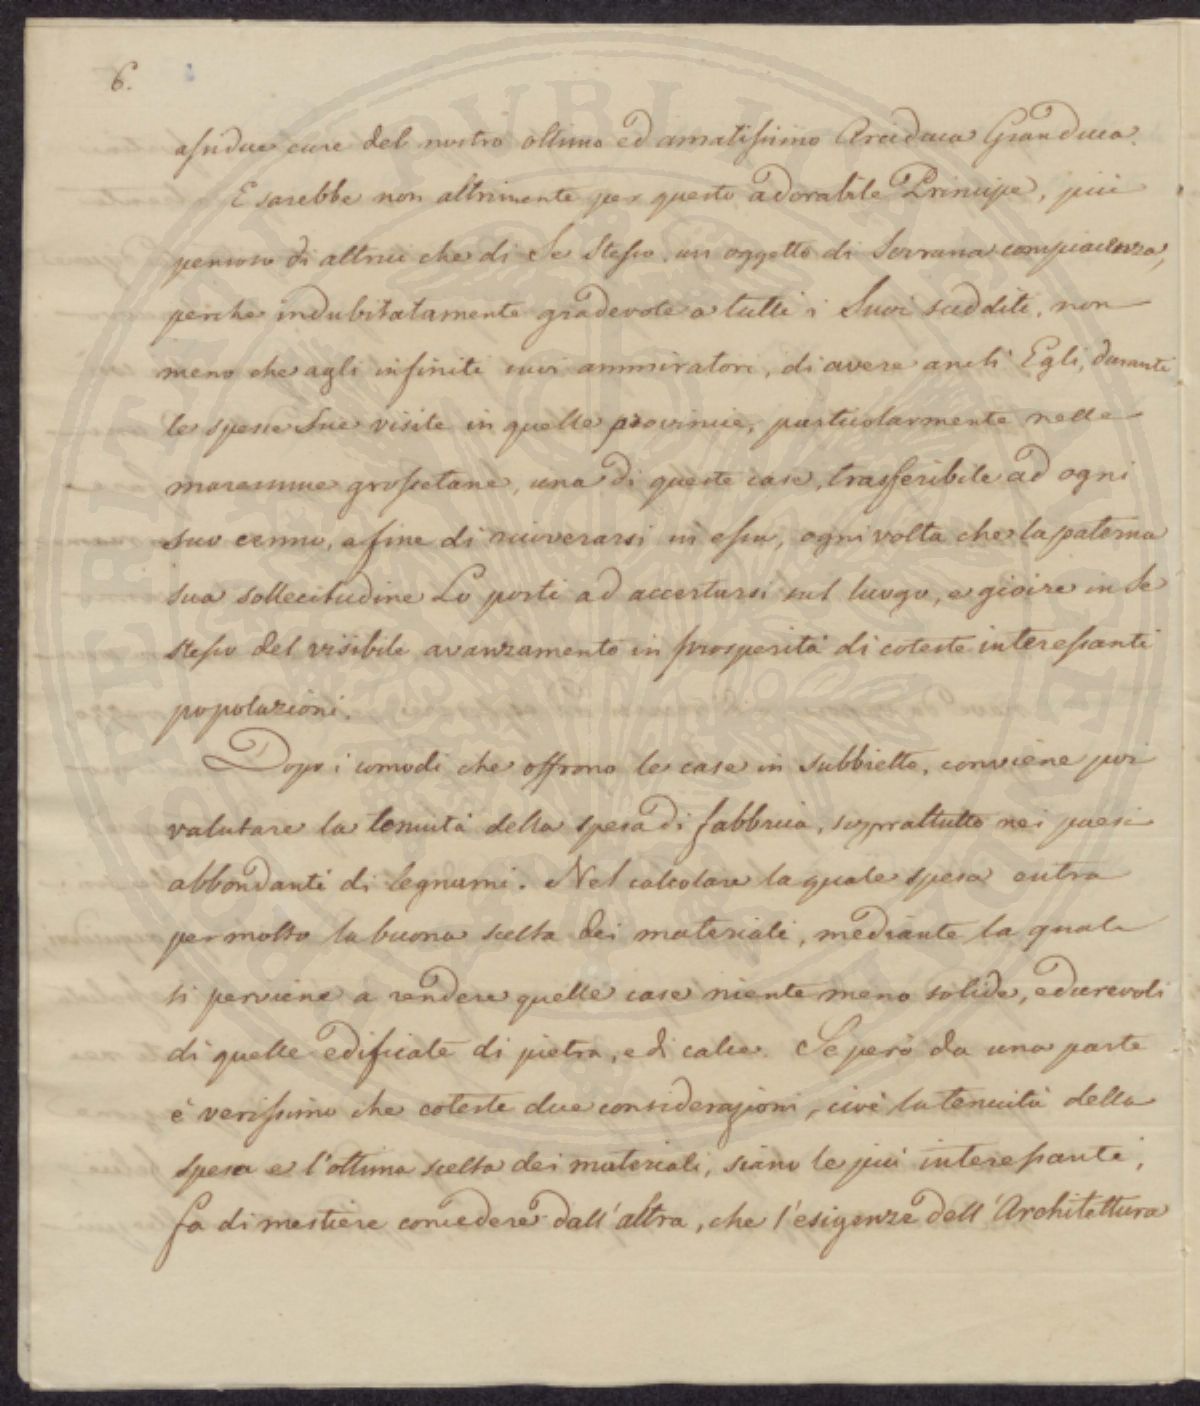 6.
assidue cure del nostro ottimo ed amatissimo Arciduca Granduca.
E sarebbe non altrimenti per questo adorabile Principe, più
penoso di altrui che di Se Stesso, un oggetto di Sovrana compiacenza,
perchè indubitatamente gradevole a tutti i Suoi sudditi, non
meno che agli infiniti suoi ammiratori, di avere anch' Egli, durante
le spesse Sue visite in quelle provincie, particolarmente nelle
maremme grossetane, una di queste case, trasferibile ad ogni
suo cenno, a fine di ricoverarsi in essa, ogni volta che la paterna
sua sollecitudine Lo porti ad accertarsi sul luogo, e gioire in Se
stesso del visibile avanzamento in prosperità di coteste interessanti
popolazioni.
Dopo i comodi che offrono le case in subbietto, conviene poi
valutare la tenuità della spesa di fabbrica, soprattutto nei paesi
abbondanti di legnami. Nel calcolare la quale spesa entra
per molto la buona scelta dei materiali, mediante la quale
si perviene a rendere quelle case niente meno solide, e durevoli
di quelle edificate di pietra, e di calce. Se però da una parte
è verissimo che coteste due considerazioni, cioè la tenuità della
spesa e l'ottima scelta dei materiali, siano le più interessanti,
fa di mestiere concedere dall'altra, che l'esigenze dell'Architettura